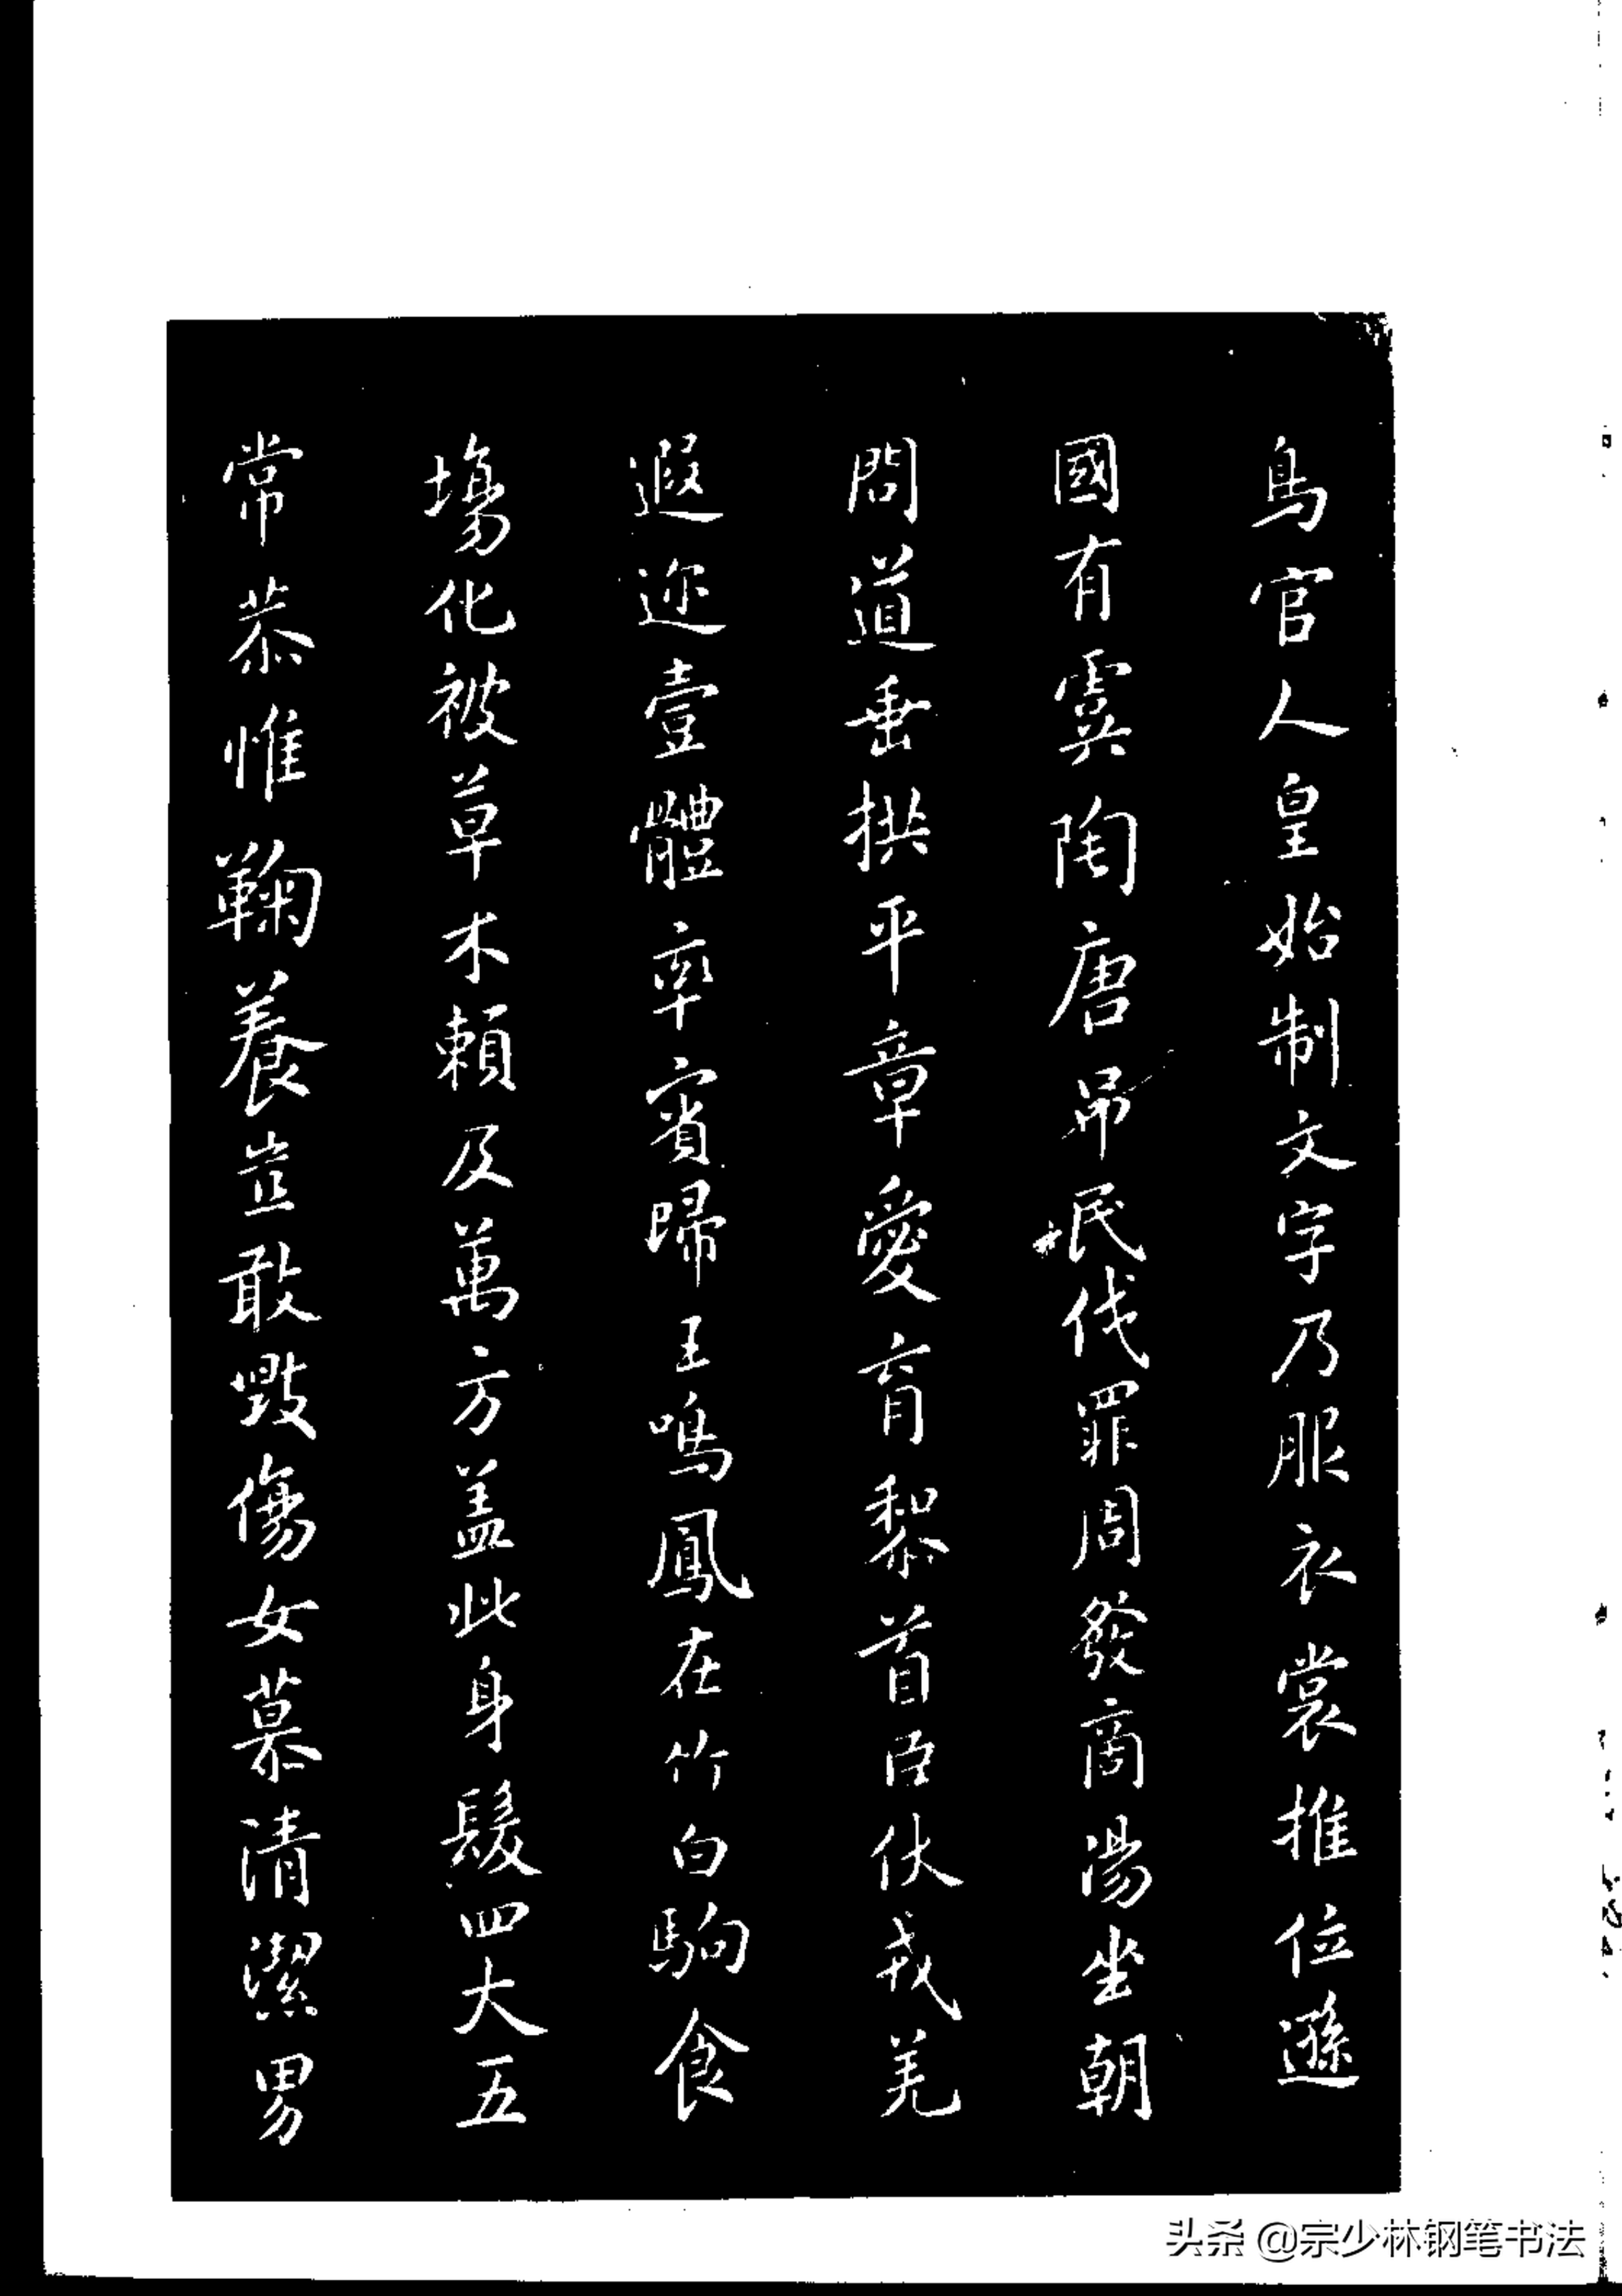 鳥官人皇始制文字乃服衣裳推位遜
國有虞陶唐吊民伐罪周發商湯坐朝
問道垂拱平章愛育黎首臣伏戎羌
遐迩壹體率賓歸王鳴鳳在竹白駒食
場化被草木賴及萬方蓋此身髮四大五
常恭惟鞠養豈敢毀傷女慕清潔男
头条 @宗少林钢笔书法